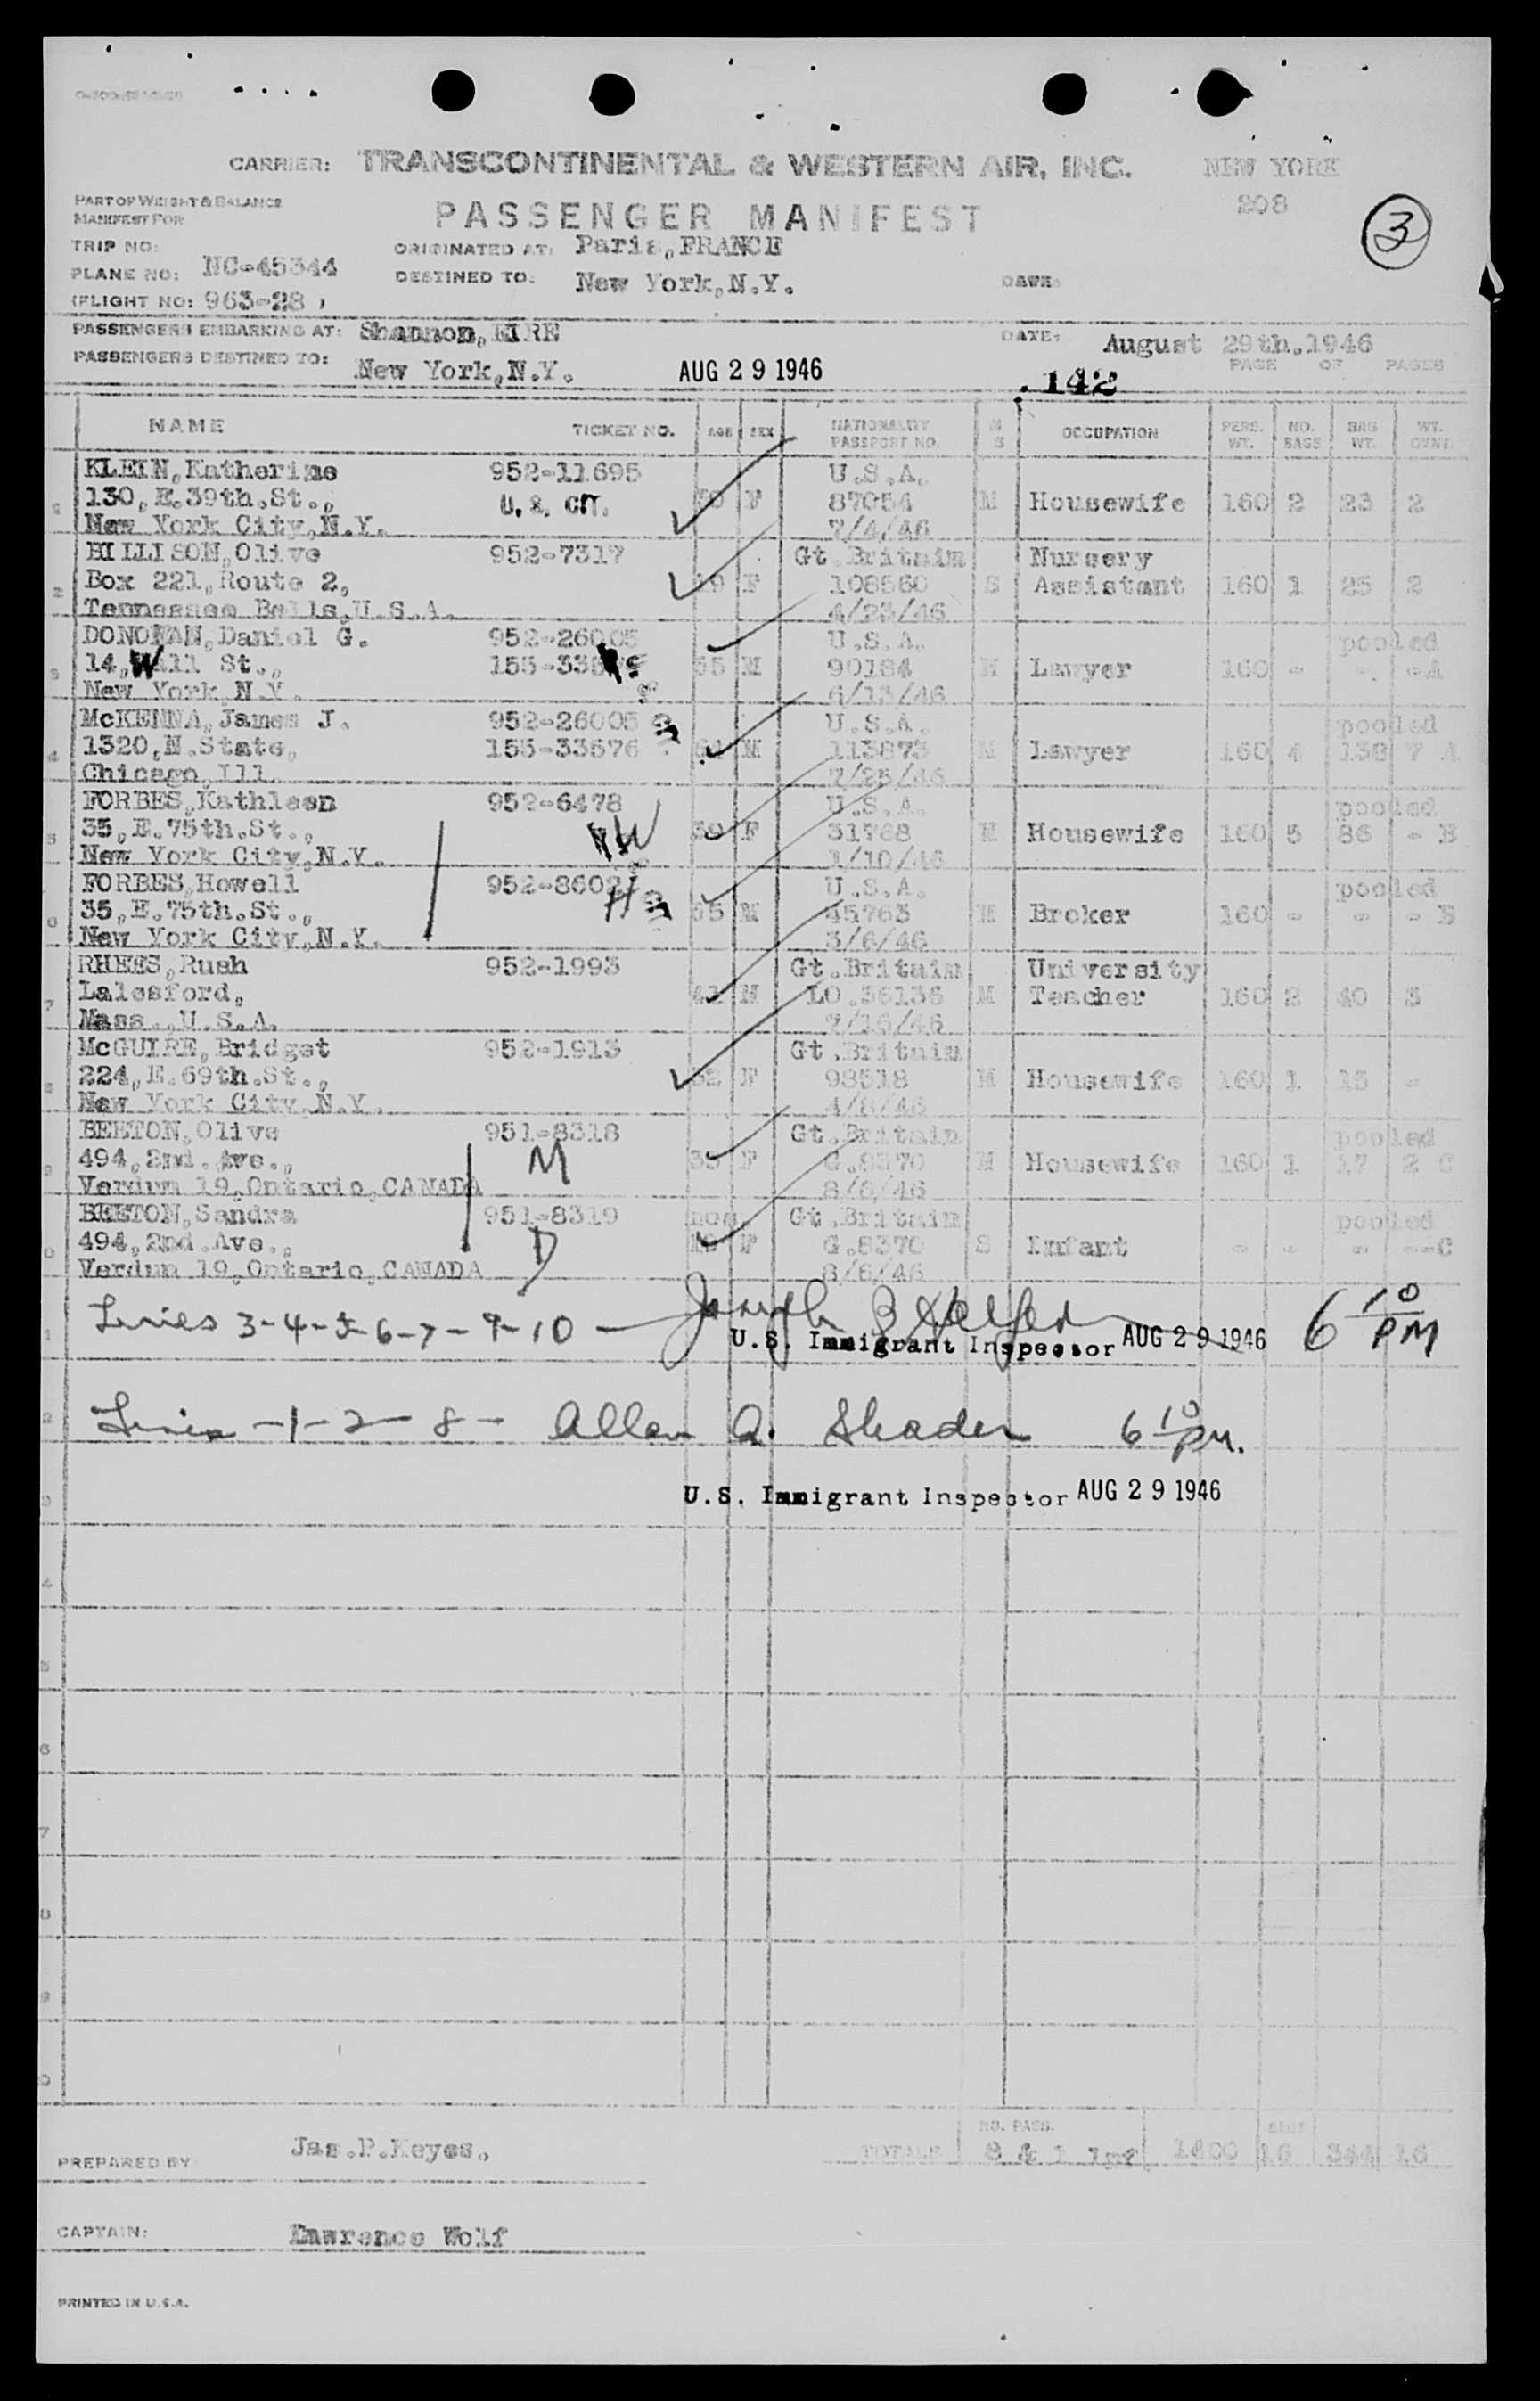 CARRIER: TRANSCONTINENTAL & WESTERN AIR, INC. NEW YORK
PART OF WEIGHT & BALANCE
MANIFEST FOR
PASSENGER MANIFEST 208
3
TRIP NO: ORIGINATED AT: Paris,FRANCE
PLANE NO: NC-45344 DESTINED TO: New York,N.Y. DATE:
(FLIGHT NO: 963-28 )
PASSENGERS EMBARKING AT: Shannon,EIRE DATE: August 29th.1946
PASSENGERS DESTINED TO: New York,N.Y. AUG 29 1946 PAGE OF PAGES
142
NAME TICKET NO. AGE SEX NATIONALITY PASSPORT NO. M S OCCUPATION PERS. WT. NO. BAGS BAG WT. WT. OVWT.
KLEIN,Katherine 952-11695 U.S.A.
130,E.39th.St., U.S. CIT. F 87054 M Housewife 160 2 23 2
New York City,N.Y. 7/4/46
BILLISON,Olive 952-7317 Gt.Britain Nursery
2 Box 221,Route 2, 19 F 108560 S Assistant 160 1 25 2
Tennessee Bells,U.S.A. 4/23/46
DONOVAN,Daniel G. 952-26005 U.S.A. pooled
3 14,Wall St., 155-335 55 M 90184 M Lawyer 160 - - -A
New York N.Y. 6/13/46
McKENNA,James J. 952-26005 U.S.A. pooled
4 1320,N.State, 155-33576 M 113873 M Lawyer 160 4 138 7 A
Chicago,Ill. 7/25/46
FORBES,Kathleen 952-6478 U.S.A. pooled
5 35,E.75th.St., W 39 F 31768 M Housewife 160 5 86 - B
New York City,N.Y. 1/10/46
FORBES,Howell 952-8602 U.S.A. pooled
6 35,E.75th.St., H 55 M 45763 M Broker 160 - - - B
New York City,N.Y. 3/6/46
RHEES,Rush 952-1993 Gt.Britain University
7 Lalesford, 41 M LO.36136 M Teacher 160 2 40 3
Mass.,U.S.A. 7/16/46
McGUIRE,Bridget 952-1913 Gt.Britain
8 224,E.69th.St., 32 F 98518 M Housewife 160 1 15 -
New York City,N.Y. 4/8/46
BEETON,Olive 951-8318 Gt.Britain pooled
9 494,2nd.Ave., M 35 F G.8370 M Housewife 160 1 17 2 C
Verdun 19,Ontario,CANADA 8/6/46
BEETON,Sandra 951-8319 mos. Gt.Britain pooled
0 494,2nd.Ave., D 18 F G.8370 S Infant - - - --C
Verdun 19,Ontario,CANADA 8/6/46
Lines 3-4-5-6-7-9-10 - Joseph B 6 10 PM
1 U.S. Immigrant Inspector AUG 29 1946
2 Lines -1-2-8- Allen A. Shader 6 10 PM.
3 U.S. Immigrant Inspector AUG 29 1946
4
5
6
7
8
9
0
NO. PASS. BAGS
PREPARED BY: Jas.P.Keyes. TOTALS 8 & 1 Inf 1400 16 344 16
CAPTAIN: Lawrence Wolf
PRINTED IN U.S.A.